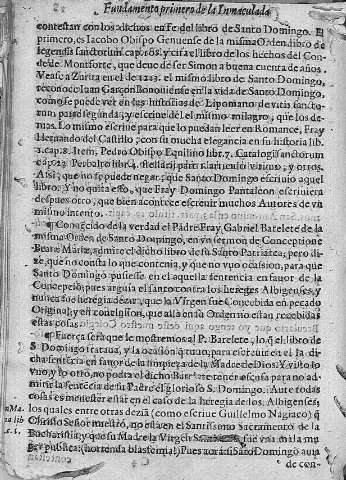 Fundamento primero de la Inmaculada
contestan con los dichos en Fe del libro de Santo Domingo. El
primero, es Iacobo Obispo Genuense de la misma Orden libro de
legendis sanctorum cap. 108. y cita el libro de los hechos del Conde
de Montforte, que deue de ser Simon a buena cuenta de años.
Vease a Zurita en el de 1213. el mismo libro de Santo Domingo,
reconoce Iuan Garçon Bononiense en la vida de Santo Domingo,
como se puede ver en las historias de Lipomano de vitis sancto-
rum parte segunda; y escriue de el el mismo milagro, que los de-
mas. Lo mismo escriue para que lo puedan leer en Romance, Fray
Hernando del Castillo, con su mucha elegancia en su historia lib.
1. cap. 8. Item, Pedro Obispo Equilino lib. Catalogi sanctorum
cap. 23. y otros.
Assi, que no se puede negar, que Santo Domingo escriuio aquel
libro. Y no quita esto, que Fray Domingo Pantaleon escriuiera
despues otro, que bien acontece escreuir muchos Autores de vn
mismo intento.
¶ Conocido de la verdad el Padre Fray Gabriel Barelete de la
misma Orden de Santo Domingo, en vn sermon de Conceptione
Beatæ Mariæ, admite el dicho libro de su Santo Patriarca; pero di-
ze, que no consta lo que contenia, y que no vuo ocasion, para que
Santo Domingo pusiesse en el aquella sentencia en fauor de la
Concepcion, pues arguia el santo contra los hereges Albigenses, y
nunca fue heregia dezir, que la Virgen fue Concebida en pecado
Original; y en conclusion, que alla en su Orden no estan recebidas
estas cosas.
¶ Fuerça será que le mostremos al P. Barelete, lo q̃ el libro de
S. Domingo trataua, y la ocasion q̃ tuuo, para escreuir en el la di-
cha sentẽcia en fauor de la limpieza de la Madre de Dios: Y visto lo
vno, y lo otro, no podra el dicho Barelete tener escusa para no ad-
mitir la sentẽcia de su Padre el glorioso S. Domingo. Ante todas
cosas es menester estar en el caso de la heregia de los Albigenses,
los quales entre otras dezia (como escriue Guillelmo Nagiaco) q̃
Christo Señor nuestro, no está en el Santissimo Sacramento de la
Eucharistia; y que su Madre la Virgen Santissima fue vna mala mu-
ger publica: (horrenda blasfemia!) Pues aora si Santo Domingo auia
de con-